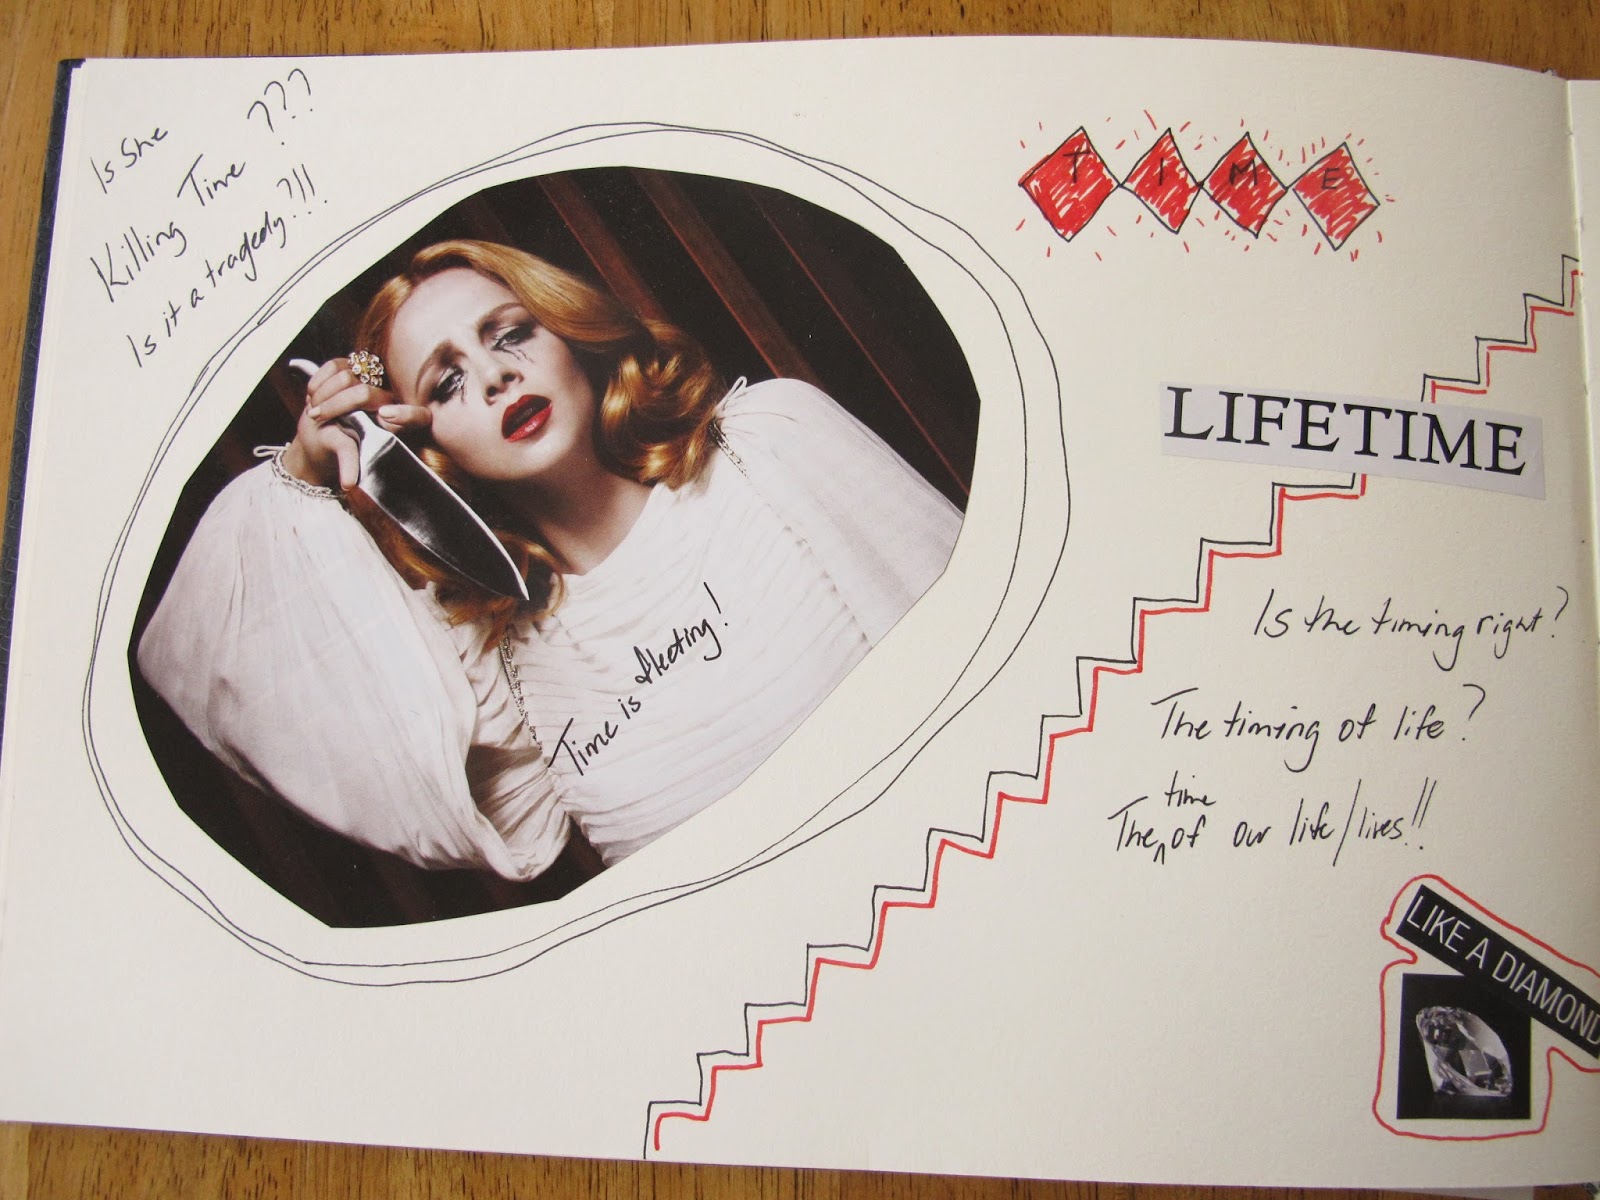 Is She
Killing Time ???
Is it a tragedy?!!
Time is fleeting!
TIME
LIFETIME
Is the timing right?
The timing of life?
The time of our life/lives!!
LIKE A DIAMOND